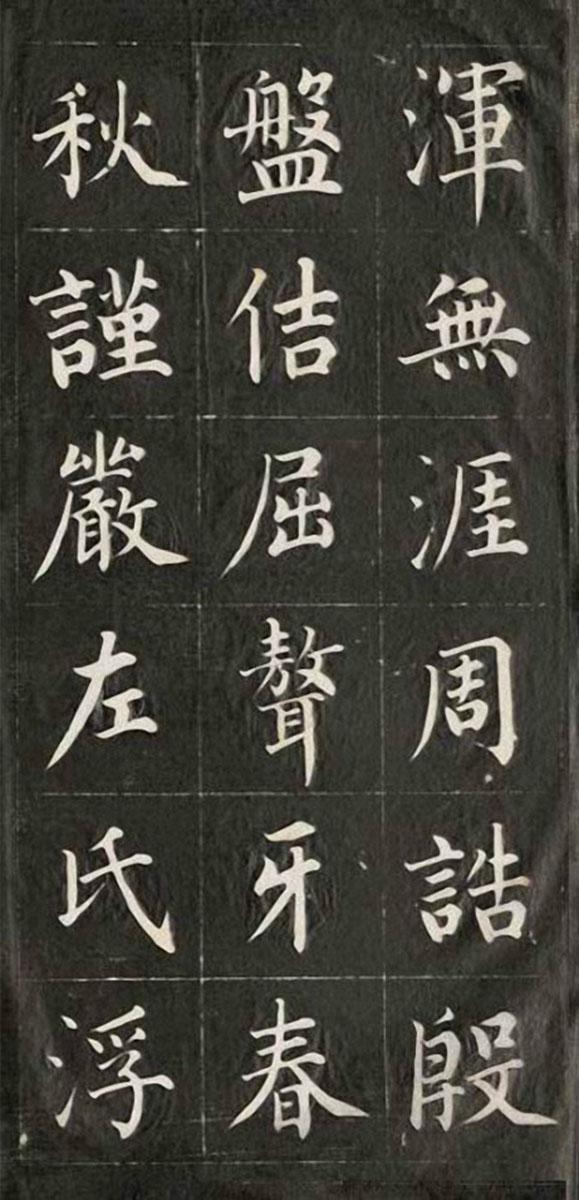 渾無涯周誥殷
盤佶屈聱牙春
秋謹嚴左氏浮